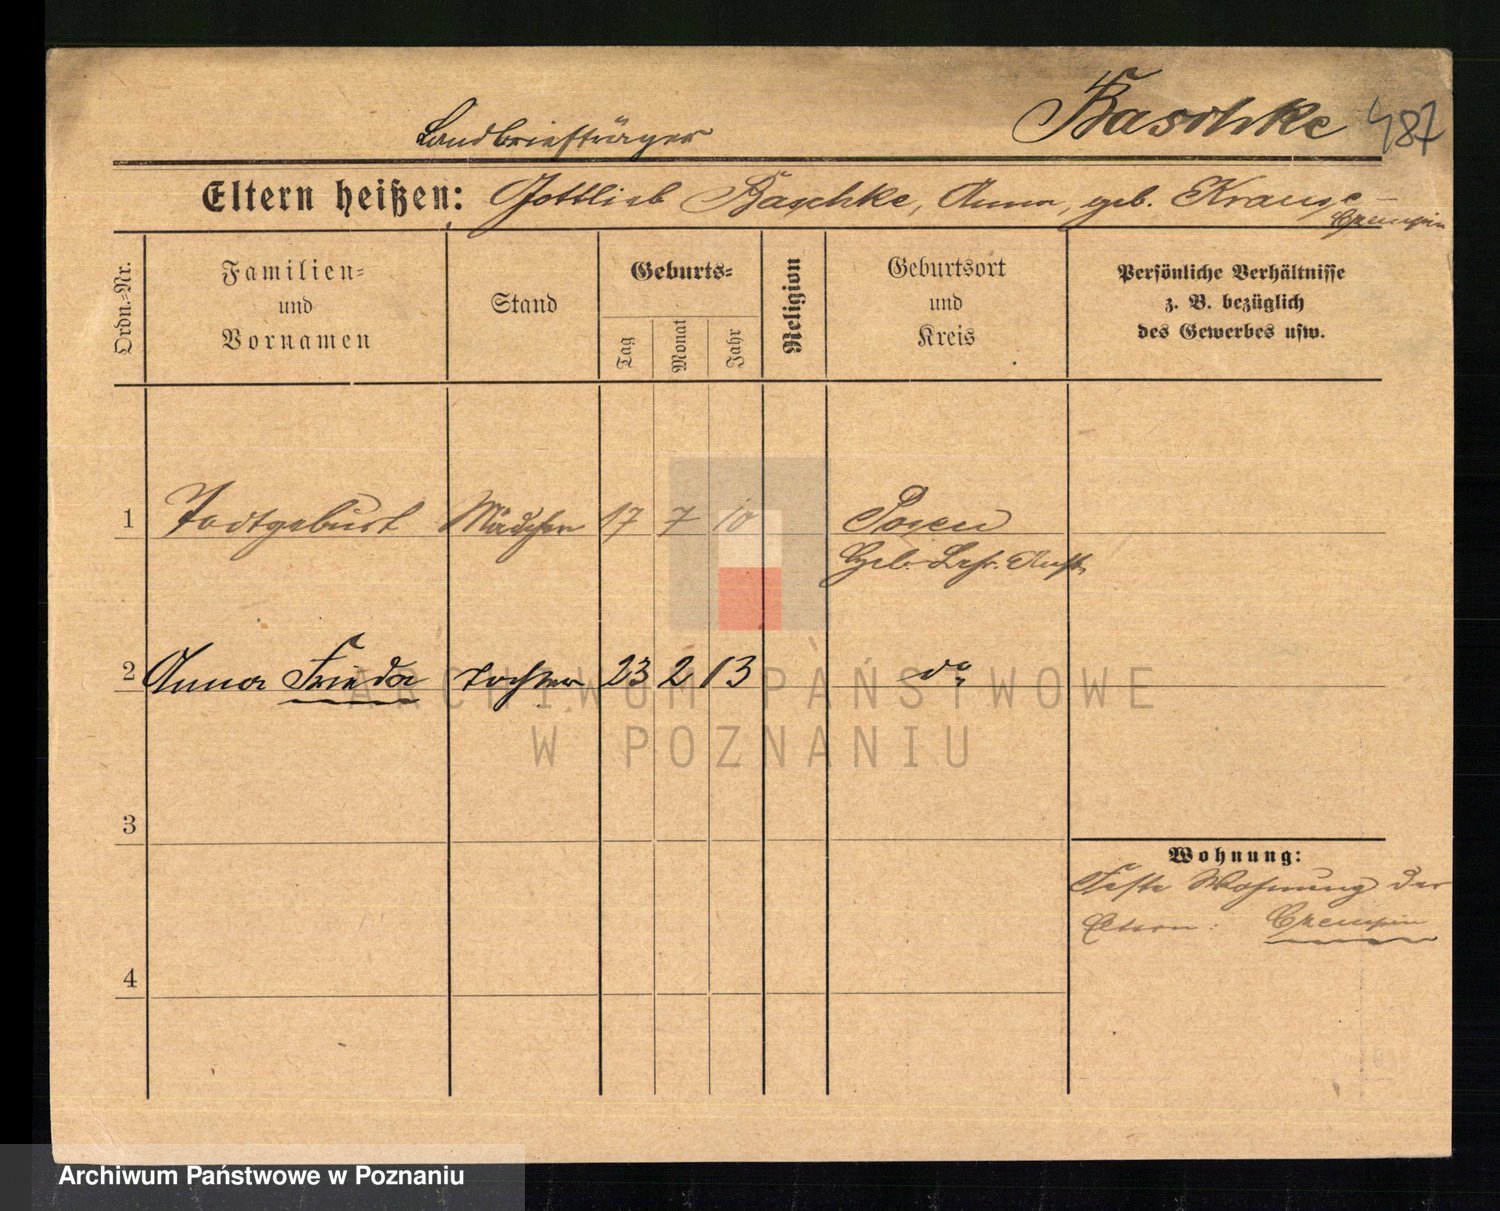 Baschke 487
Landbriefträger
Eltern heißen: Gottlieb Baschke, Anna, geb. Krause
Czempin
Ordn.-Nr.
Familien-
und
Vornamen
Stand
Geburts-
Tag
Monat
Jahr
Religion
Geburtsort
und
Kreis
Persönliche Verhältnisse
z. B. bezüglich
des Gewerbes usw.
1 Todtgeburt Mädchen 17 7 10 Posen
Geb. Lehr. Anst.
2 Anna Frieda Tochter 23 2 13 do
3
4
Wohnung:
Feste Wohnung der
Eltern: Czempin
ARCHIWUM PAŃSTWOWE
W POZNANIU
Archiwum Państwowe w Poznaniu